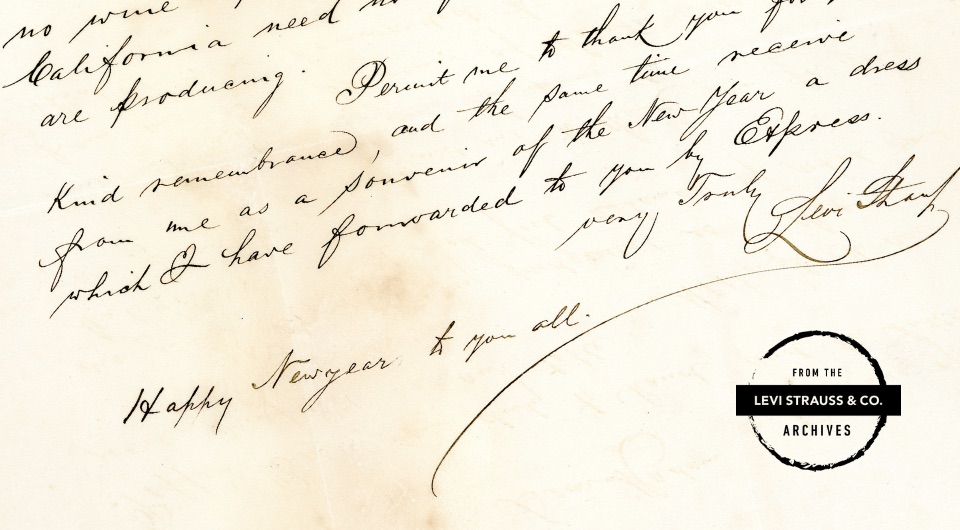 no wine
California need no
are producing. Permit me to thank you for
Kind remembrance, and the same time receive
from me as a souvenir of the New Year a dress
which I have forwarded to you by Express.
very Truly Levi Strauss
Happy Newyear to you all.
FROM THE
LEVI STRAUSS & CO.
ARCHIVES